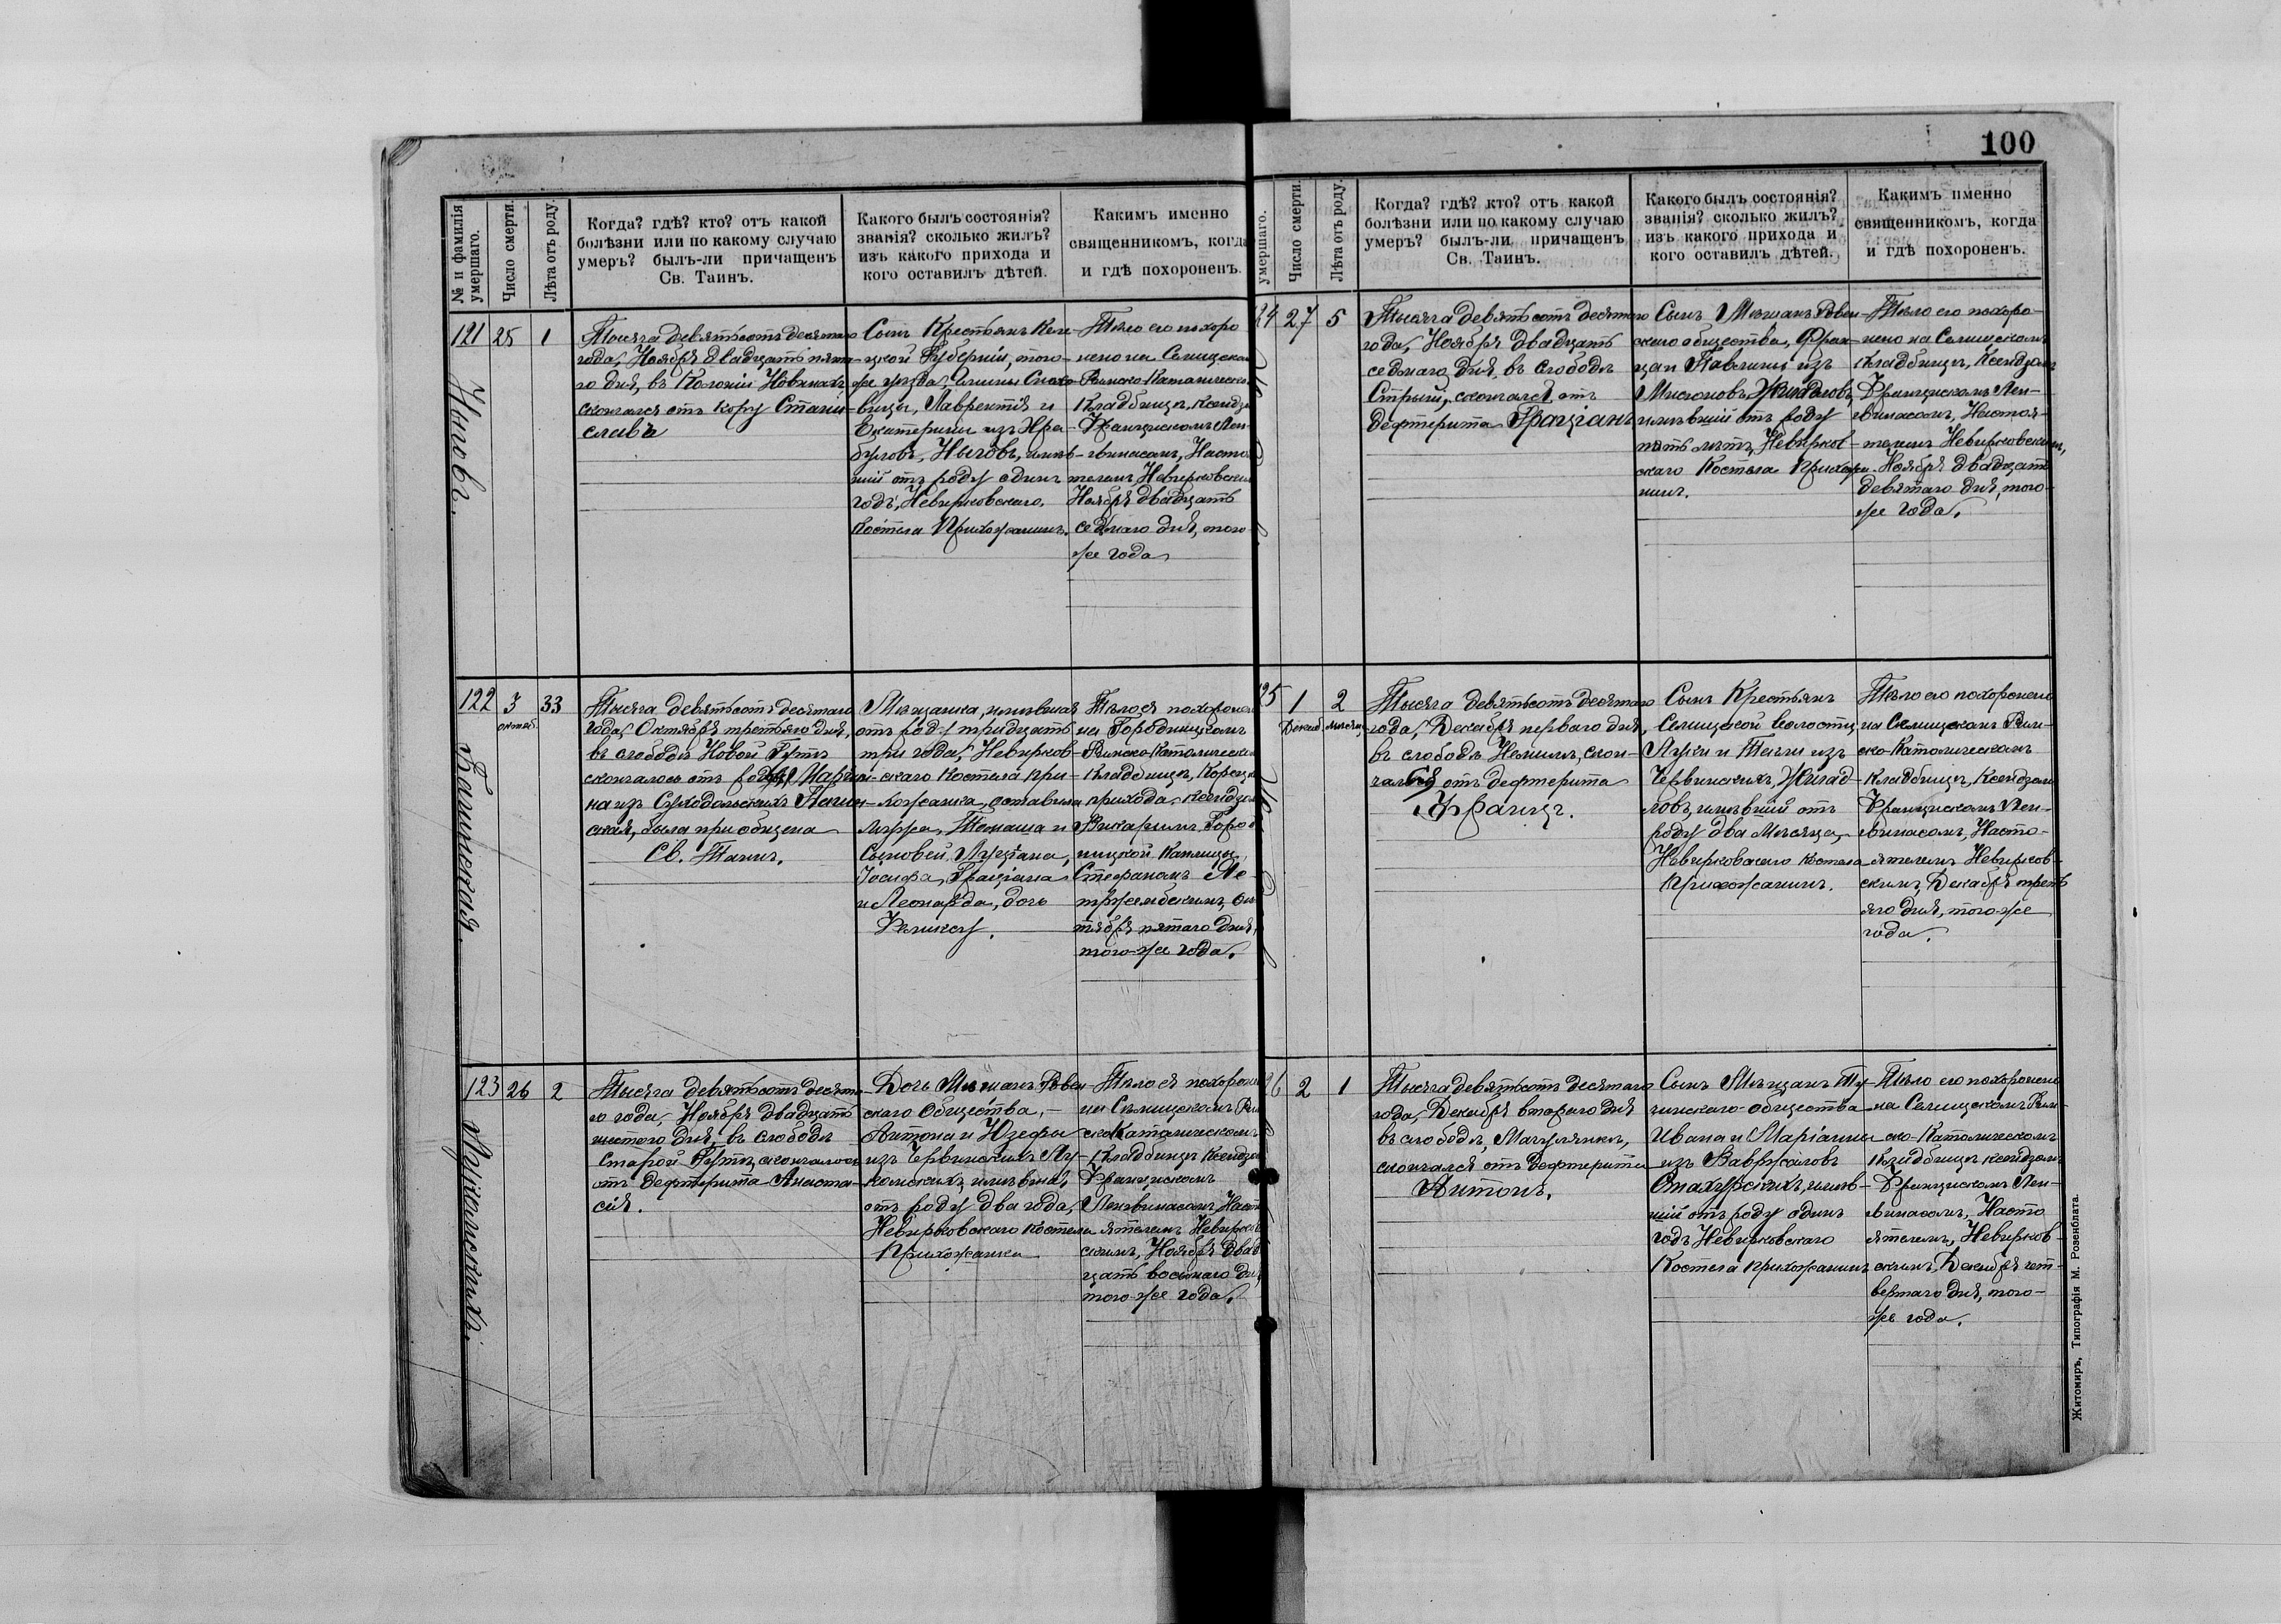 100
№ и фамилія умершаго.
Число смерти.
Лѣта отъ роду.
Когда? гдѣ? кто? отъ какой
болѣзни или по какому случаю
умеръ? былъ-ли причащенъ
Св. Таинъ.
Какого былъ состоянія?
званія? сколько жилъ?
изъ какого прихода и
кого оставилъ дѣтей.
Какимъ именно
священникомъ, когда
и гдѣ похороненъ.
121
25
1
Тысяча девятьсотъ десятаго
года, Ноября двадцать пята-
го дня, въ Колоніи Новинахъ
скончался отъ кору Стани-
славъ
Сынъ Крестьянъ Келе-
цкой Губерніи, того-
же уѣзда, Гмины
Лаврентія и
Екатерины изъ
имѣв-
шій отъ роду одинъ
годъ, Невирковскаго
Костела Прихожанинъ.
Тѣло его похоро
нено на Селищском
Римско-Католическом
Кладбищѣ, Ксендзом
Францискомъ Лен-
гвинасомъ, Насто
телемъ Невирковским
Ноября двадцать
седьмаго дня, того-
же года
122
3
октяб.
33
Калинская.
Тысяча девятьсотъ десятаго
года, Октября третьяго дня,
въ слободѣ Новой Гутѣ
скончалась отъ родовъ Маріан-
на изъ Суходольскихъ Калин-
ская, была пріобщена
Св. Таинъ.
Мѣщанка, имѣвшая
отъ роду тридцать
три года, Невирков-
скаго Костела при-
хожанка, оставила
мужа, Томаша и
Сыновей, Луціана,
Іосифа, Граціана
и Леонарда, дочь
Феликсу.
Тѣло ея похоронено
на Городницкомъ
Римско-Католическом
Кладбищѣ, Корецк
прихода, Ксендзом
Викаріемъ Город
ницкой Каплицы,
Стефаномъ Яс-
тржембскимъ, Ок
тября пятаго дня,
того-же года.
123
26
2
Тысяча девятьсотъ десята-
го года, Ноября двадцать
шестого дня, въ слободѣ
Старой Гутѣ, скончалась
отъ дефтерита Анаста-
сія.
Дочь Мѣщанъ Ровен-
скаго Общества,
Антона и Юзефы
изъ Червинскихъ Лу-
имѣвшая
отъ роду два года,
Невирковскаго Костела
Прихожанка
Тѣло ея похороне
на Селищскомъ Рим
ско-Католическомъ
Кладбищѣ Ксендзом
Францискомъ
Ленгвинасомъ, Насто
ятелемъ Невирков
скимъ, Ноября двад
цать восьмаго дня
того-же года.
умершаго.
Число смерти.
Лѣта отъ роду.
Когда? гдѣ? кто? отъ какой
болѣзни или по какому случаю
умеръ? былъ-ли причащенъ
Св. Таинъ.
Какого былъ состоянія?
званія? сколько жилъ?
изъ какого прихода и
кого оставилъ дѣтей.
Какимъ именно
священникомъ, когда
и гдѣ похороненъ.
24
27
5
Тысяча девятьсотъ десятаго
года, Ноября двадцать
седьмаго дня, въ слободѣ
Стрыій, скончался отъ
дефтерита Граціанъ
Сынъ Мѣщанъ Ровен-
скаго общества, Фран-
ца и Павлины изъ
Мисюновъ Жигадловъ,
имѣвшій отъ роду
пять лѣтъ, Невирков-
скаго Костела Прихожа-
нинъ.
Тѣло его похоро-
нено на Селищскомъ
Кладбищѣ, Ксендзомъ
Францискомъ Лен-
гвинасомъ, Настоя-
телемъ Невирковскимъ,
Ноября двадцать
девятаго дня, того-
же года.
25
1
Декаб
2
мѣсяц
Тысяча девятьсотъ десятаго
года, Декабря перваго дня,
въ слободѣ Немили, скон-
чался отъ дефтерита
Францъ.
Сынъ Крестьянъ
Селищской волости,
Луки и Теклы изъ
Червинскихъ, Жигад-
ловъ, имѣвшій отъ
роду два мѣсяца,
Невирковскаго Костела
Прихожанинъ.
Тѣло его похоронено
на Селищскомъ Рим-
ско-Католическомъ
Кладбищѣ, Ксендзомъ
Францискомъ Лен-
гвинасомъ, Насто-
ятелемъ Невирков-
скимъ, Декабря треть-
яго дня, того-же
года.
26
2
1
Тысяча девятьсотъ десятаго
года, Декабря втораго дня
въ слободѣ, Мачулянкѣ,
скончался отъ дефтерита
Антонъ.
Сынъ Мѣщанъ Ту-
чинскаго общества
Ивана и Маріанны
изъ Вавржоловъ
имѣв-
шій отъ роду одинъ
годъ Невирковскаго
Костела прихожанинъ
Тѣло его похоронено
на Селищскомъ Рим-
ско-Католическомъ
Кладбищѣ ксендзомъ
Францискомъ Лен-
гвинасомъ, Насто
ятелемъ, Невирков-
скимъ, Декабря чет-
вертаго дня, того-
же года.
Житомиръ, Типографія М. Розенблата.